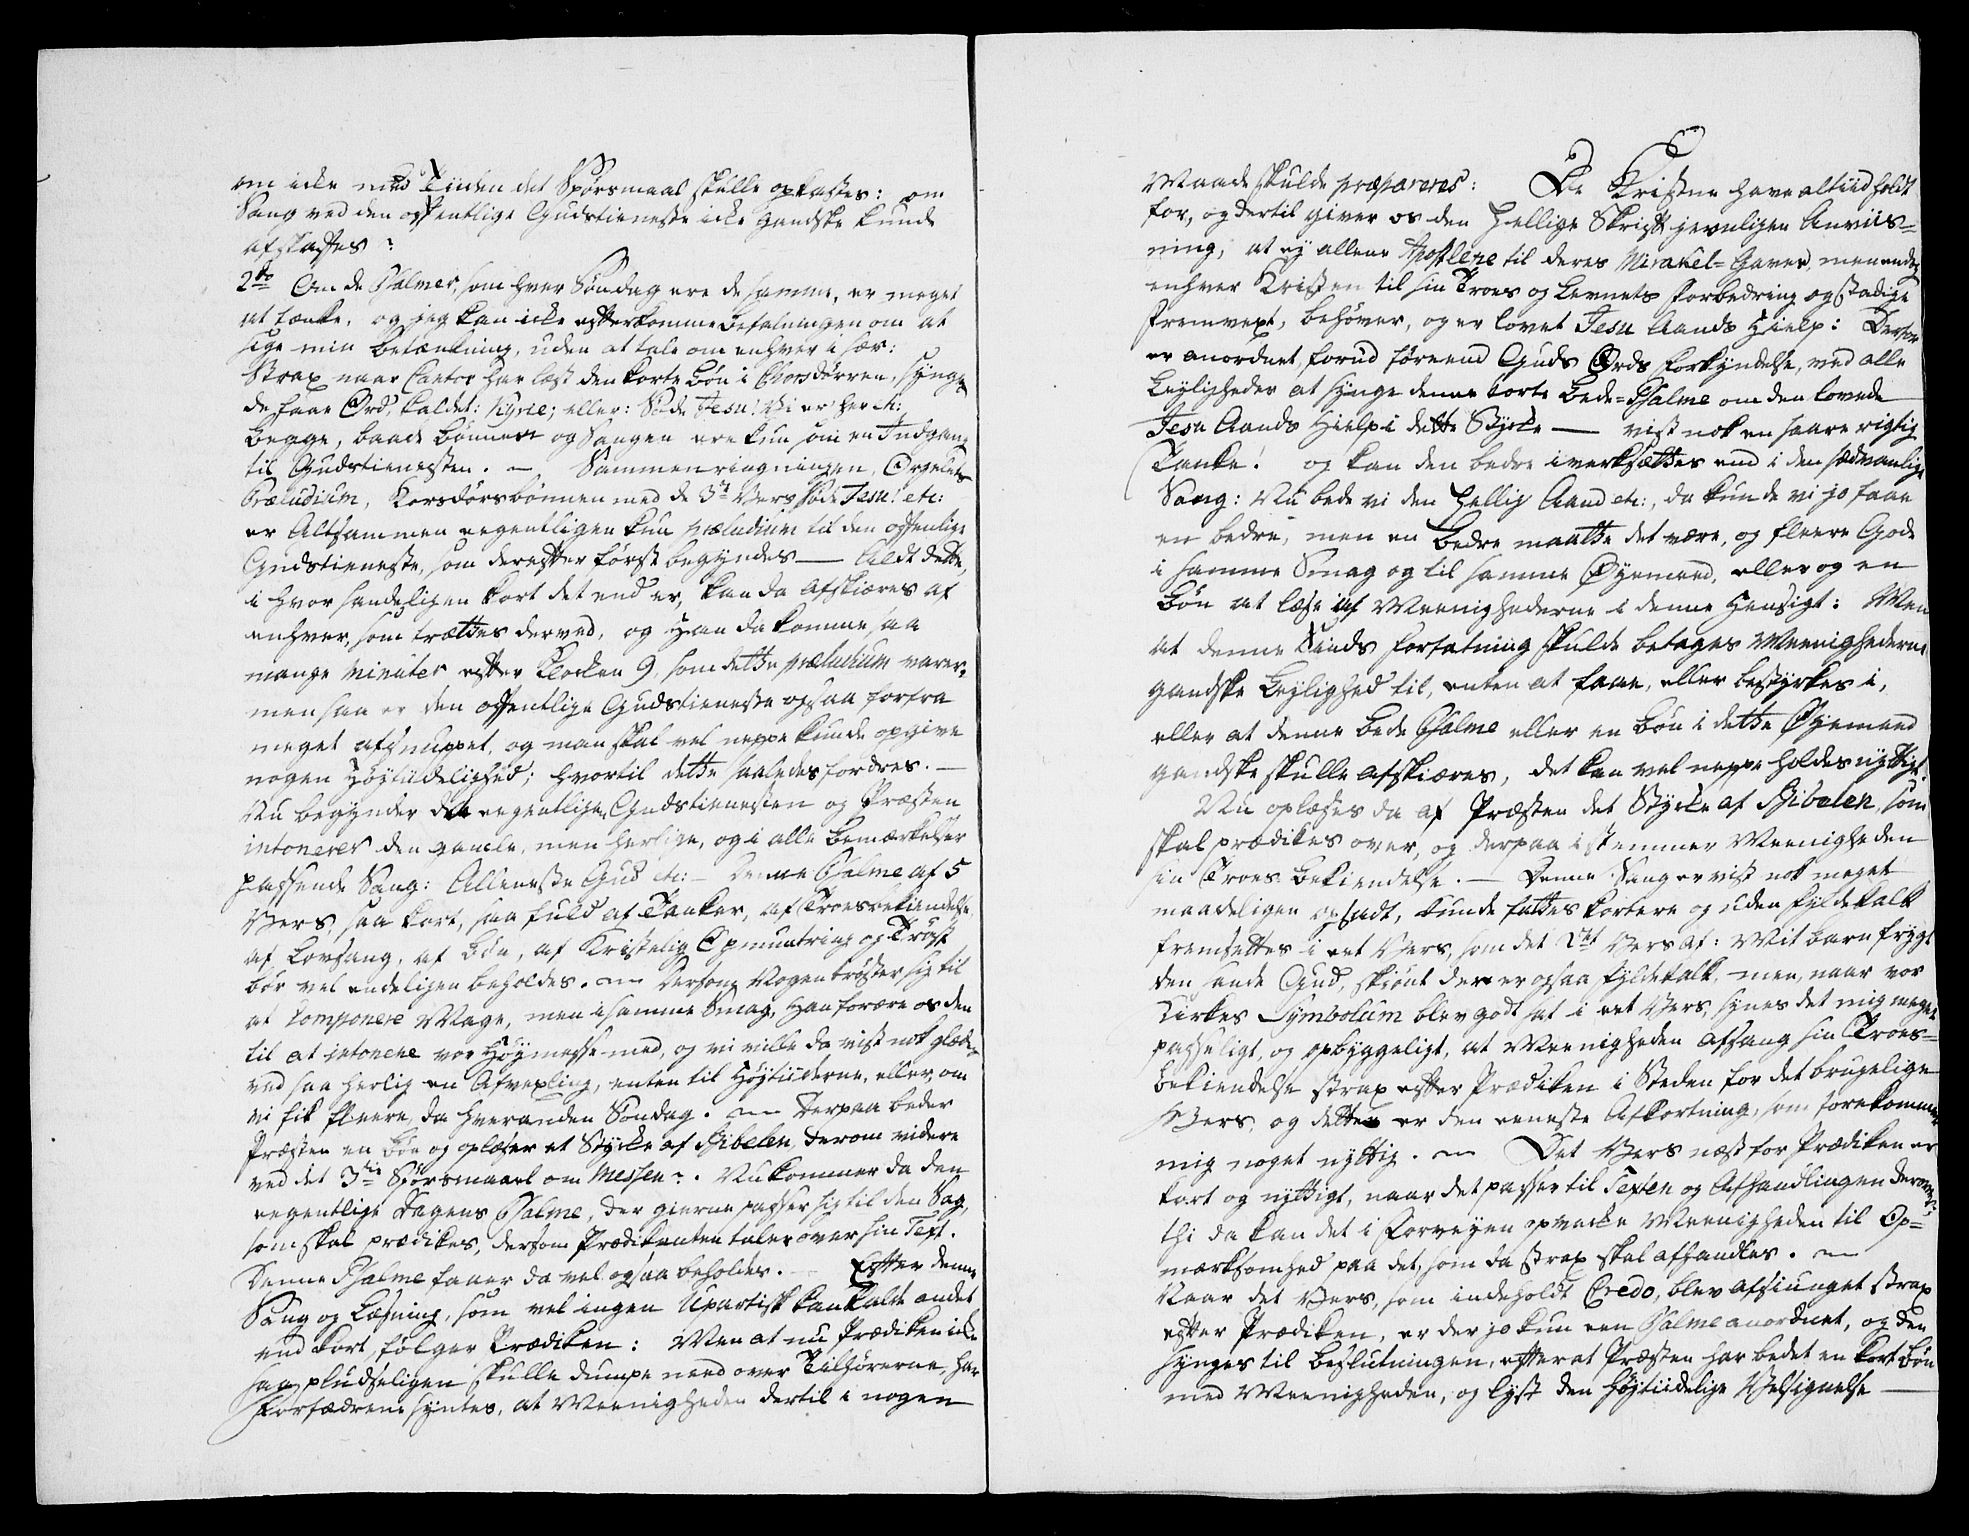 om icke med Tiiden det Spørsmaal skulle opkastes: om
Sang ved den offentlige Gudstieneste icke gandske kunde
afskaffes?
2do Om de Psalmer, som hver Søndag ere de samme, er meget
at tænke, og jeg kan icke efterkomme Befalningen om at
sige min Betænkning, uden at tale om enhver i sær:
Strax naar Cantor har læst den korte Bøn i Chorsdørren, synges
de faae Ord, kaldet: Kyrie; eller: Søde Jesu! Vi er her etc:
begge, baade Bønnen og Sangen ere kun som en Indgang
til Gudstienesten. — Sammenringningen, Orgelets
Præludium, Korsdørsbønnen med de 3de Vers søde Jesu! etc:
er Altsammen egentligen kun præludium til den offenlige
Gudstieneste, som derefter først begyndes — Aldt dette,
i hvor sandeligen kort det end er, kan da afskiæres af
enhver, som trættes derved, og Han da komme saa
mange Minuter efter Klocken 9, som dette præludium varer,
men saa er den offentlige Gudstieneste ogsaa forfra
meget afsnuppet, og man skal vel neppe kunde opgive
nogen Høytiidelighed; hvortil dette saaledes fordres. —
Nu begynder den egentlige Gudstienesten og Præsten
intonerer den gamle, men herlige, og i alle Bemærkelser
passende Sang: Alleneste Gud etc: — Denne Psalme af 5
Vers, saa kort, saa fuld af Tanker, af Troesbekiendelse
af Lovsang, af Bøn, af Kristelig Opmuntring og Trøst
bør vel endeligen beholdes. — Dersom Nogen trøster sig til
at Componere Mage, men i samme Smag, Han forære os den
til at intonere vor Høymesse med, og vi ville da vist nok glæde
ved saa herlig en Afvexling, enten til Høytiiderne, eller, om
vi fik fleere, da hveranden Søndag. — Derpaa beder
Præsten en Bøn og oplæser et Stycke af Bibelen, derom videre
ved det 3die Spørsmaal om Messen. Nu kommer da den
egentlige Dagens Psalme, der gierne passer sig til den Sag,
som skal prædikes, dersom Prædikanten taler over sin Text.
Denne Psalme faaer da vel ogsaa beholdes. — Efter denne
Sang og Læsning, som vel ingen Upartisk kan kalde andet
end kort, følger Prædiken: Men at nu Prædiken icke
saa pludseligen skulle dumpe need over Tilhørerne, har
Forfædrene syntes, at Meenigheden dertil i nogen
Maade skulde præpareres: De Kristne have altiid holdt
for, og dertil giver os den Hellige Skrift jevnligen Anviis-
ning, at ey allene Apostlene til deres Mirakel-Gaver, men endog
enhver Kristen til sin Troes og Levnets Forbedring og stadige
Fremvext, behøver, og er lovet Jesu Aands Hielp: Derfor
er anordnet, forud førend Guds Ords Forkyndelse, ved alle
Leyligheder at synge denne korte Bede-Psalme om den lovede
Jesu Aands Hielp i dette Stycke — vist nok en saare rigtig
Tanke! og kan den bedre iverksættes end i den sædvanlige
Sang: Nu bede vi den Hellig Aand etc:, da kunde vi jo faae
en bedre, men en bedre maatte det være, og fleere Gode
i samme Smag og til samme Øyemeed, eller og en
Bøn at læse af Meenighederne i denne Hensigt: Men
at denne Sinds Forfatning skulde betages Meenighederne
gandske Leylighed til, enten at faae, eller bestyrkes i,
eller at denne Bede Psalme eller en Bøn i dette Øyemeed
gandske skulle afskiæres, det kan vel neppe holdes nyttigt.
Nu oplæses da af Præsten det Stycke af Bibelen, som
skal prædikes over, og derpaa istemmer Meenigheden
sin Troes Bekiendelse. — Denne Sang er vist nok meget
maadeligen opsadt, kunde sættes kortere og uden Fyldekalk
fremsettes i eet Vers, som det 1ste Vers af: Mit barn frygt
den sande Gud, skiønt der er ogsaa Fyldekalk, men, naar vor
Kirkes Symbolum blev godt sat i eet Vers, synes det mig meget
passeligt, og opbyggeligt, at Meenigheden afsang sin Troes-
bekiendelse strax efter Prædiken i Steden for det brugelige
Vers, og dette er den eeneste Afkortning, som forekommer
mig noget nyttig. — Det Vers næst for Prædiken er
kort og nyttigt, naar det passer til Texten og Afhandlingen derover
thi da kan det i Forveyen opvæcke Meenigheden til Op-
mærksomhed paa det, som da strax skal afhandles. —
Naar det Vers, som indeholdt Credo, blev afsiunget strax
efter Prædiken, er der jo kun een Psalme anordnet, og den
synges til Beslutningen, efterat Præsten har bedet en kort Bøn
med Meenigheden, og lyst den Høytiidelige Velsignelse —